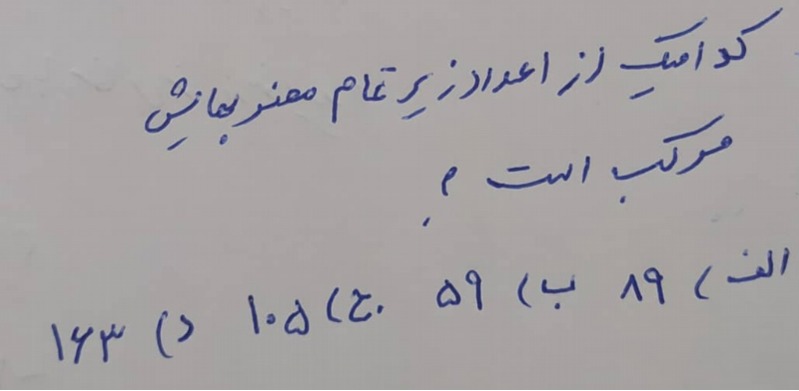 کدامیک از اعداد زیر تمام مضربهایش
مرکب است ؟
الف) ۸۹ ب) ۵۹ ج) ۱۰۵ د) ۱۶۳